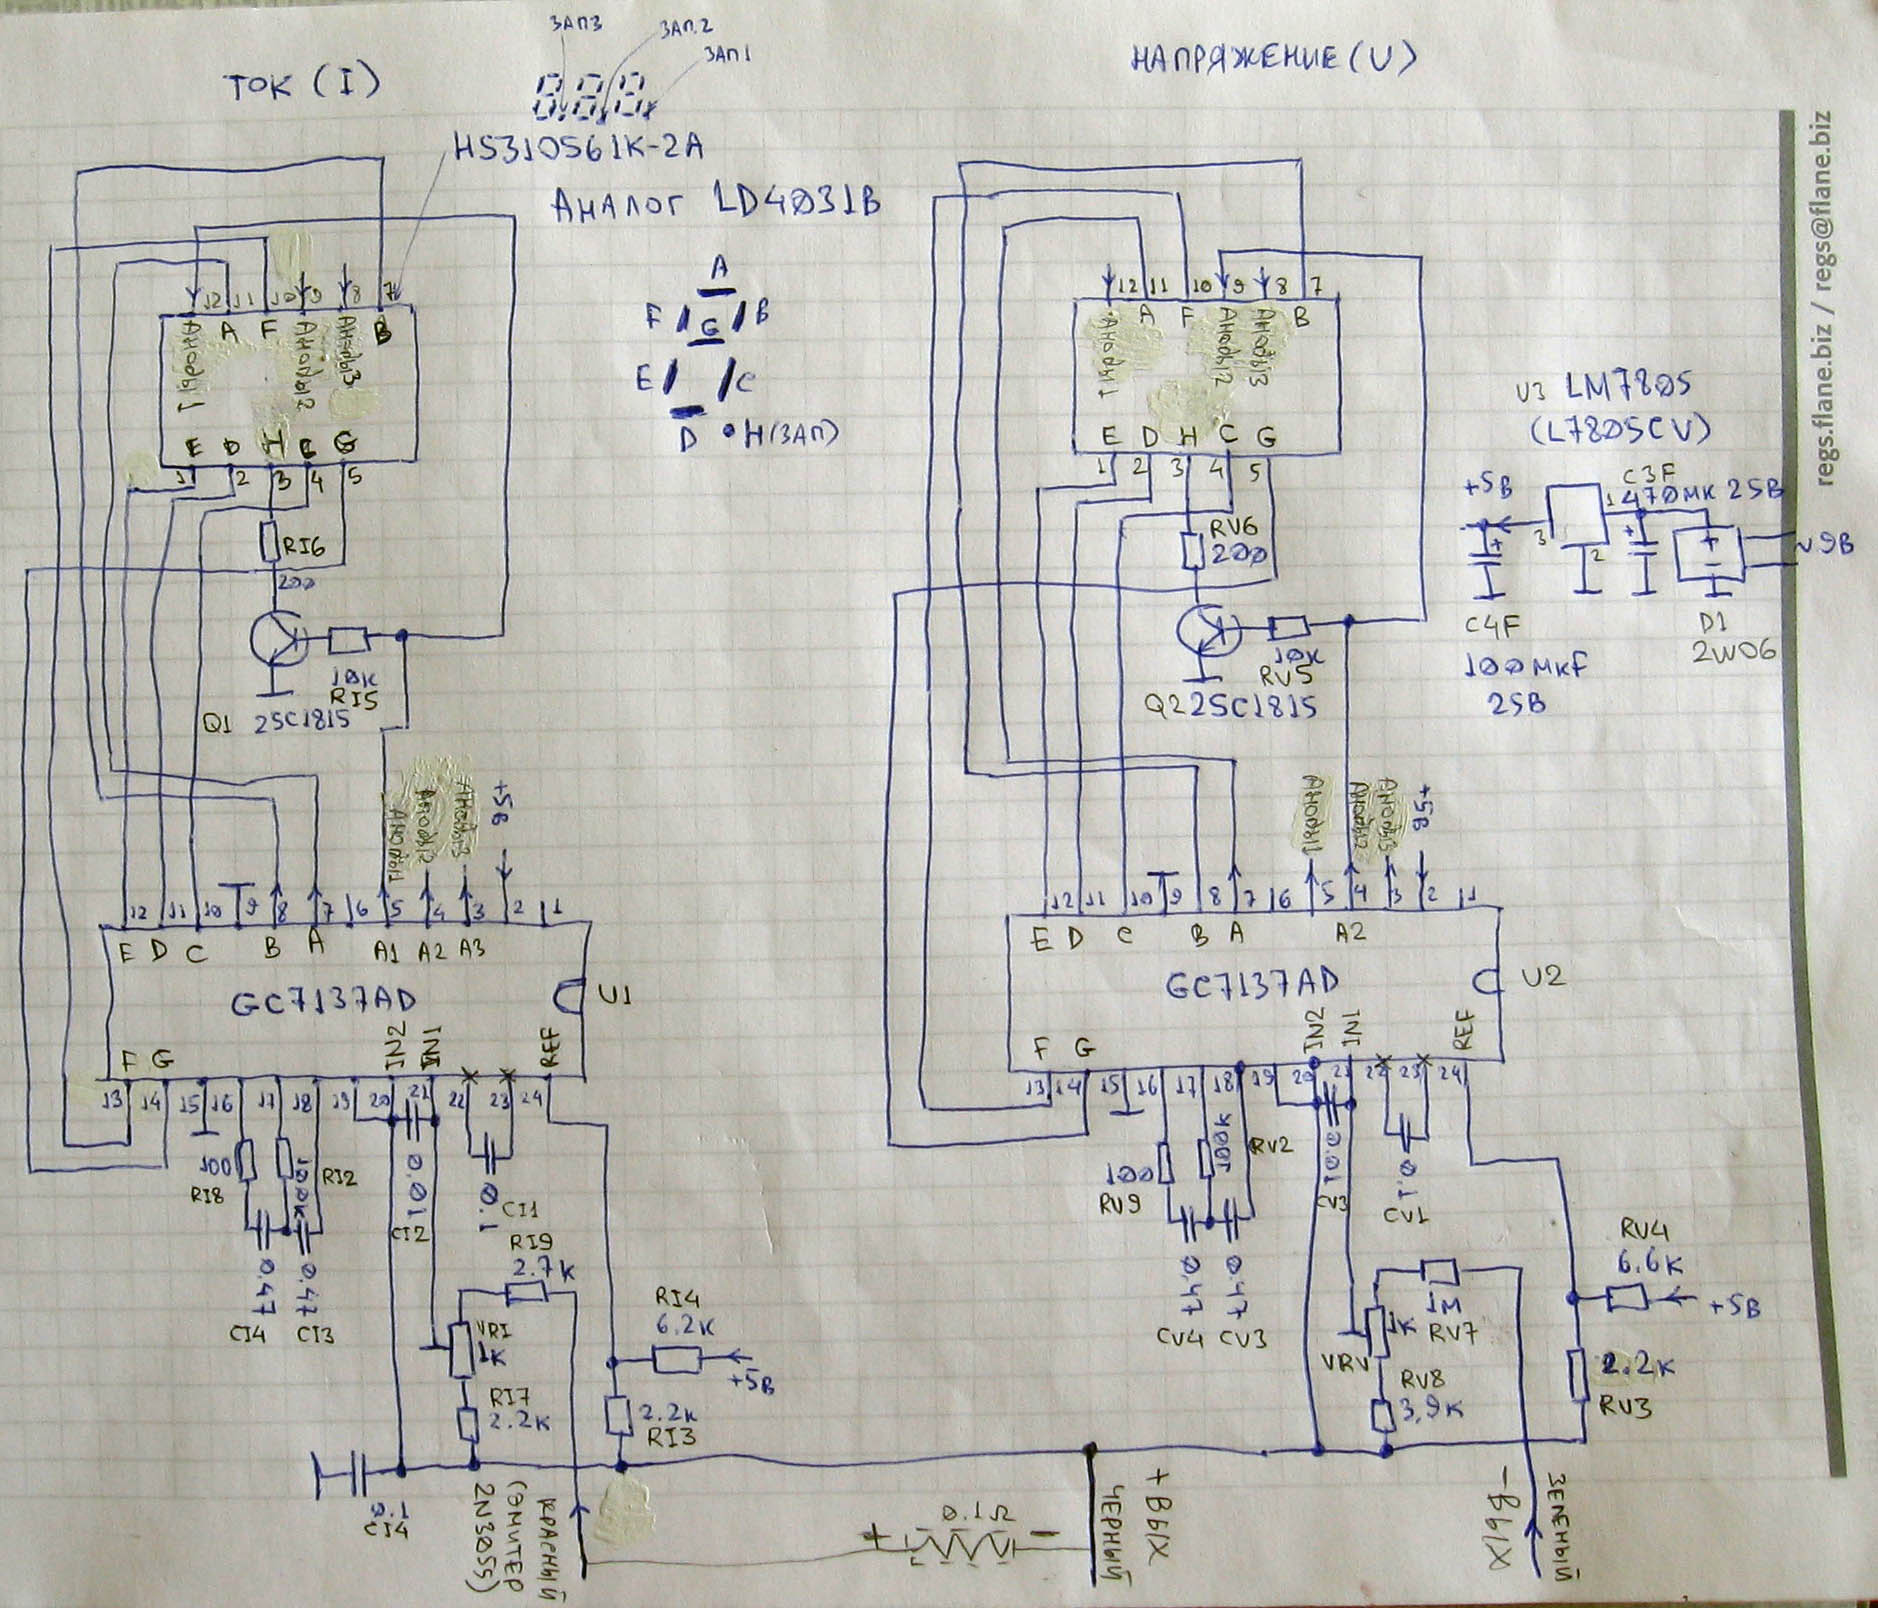 ЗАП3
ЗАП.2
ЗАП1
ТОК (I)
НАПРЯЖЕНИЕ (U)
HS310561K-2A
АНАЛОГ LD4031B
12 11 10 9 8 7
Аноды1 A F Аноды2 Аноды3 B
E D H C G
1 2 3 4 5
A
F G B
E C
D H(ЗАП)
12 11 10 9 8 7
Аноды1 A F Аноды2 Аноды3 B
E D H C G
1 2 3 4 5
RI6
200
10K
RI5
Q1 2SC1815
RV6
200
10K
RV5
Q2 2SC1815
U3 LM7805
(L7805CV)
+5В
3
1
2
C3F
470МК 25В
~9В
C4F
100МКF
25В
D1
2W06
Аноды1
Аноды2
Аноды3
+5В
12 11 10 9 8 7 6 5 4 3 2 1
E D C B A A1 A2 A3
GC7137AD
U1
F G IN2 IN1 REF
13 14 15 16 17 18 19 20 21 22 23 24
Аноды1
Аноды2
Аноды3
+5В
12 11 10 9 8 7 6 5 4 3 2 1
E D C B A A2
GC7137AD
U2
F G IN2 IN1 REF
13 14 15 16 17 18 19 20 21 22 23 24
100
RI8
100K
RI2
0.01
CI2
0.1
CI1
RI9
2.7K
0.47
CI4
0.47
CI3
VRI
1K
RI7
2.2K
RI4
6.2K
+5В
2.2K
RI3
0.1
CI4
100
RV9
100K
RV2
0.01
CV3
0.1
CV1
0.47
CV4
0.47
CV3
1M
RV7
1K
VRV
RV8
3,9K
RV4
6.6K
+5В
2.2K
RV3
КРАСНЫЙ
(ЭМИТЕР
2N3055)
+ 0.1Ω -
ЧЕРНЫЙ
+ ВЫХ
- ВЫХ
ЗЕЛЕНЫЙ
regs.flane.biz / regs@flane.biz